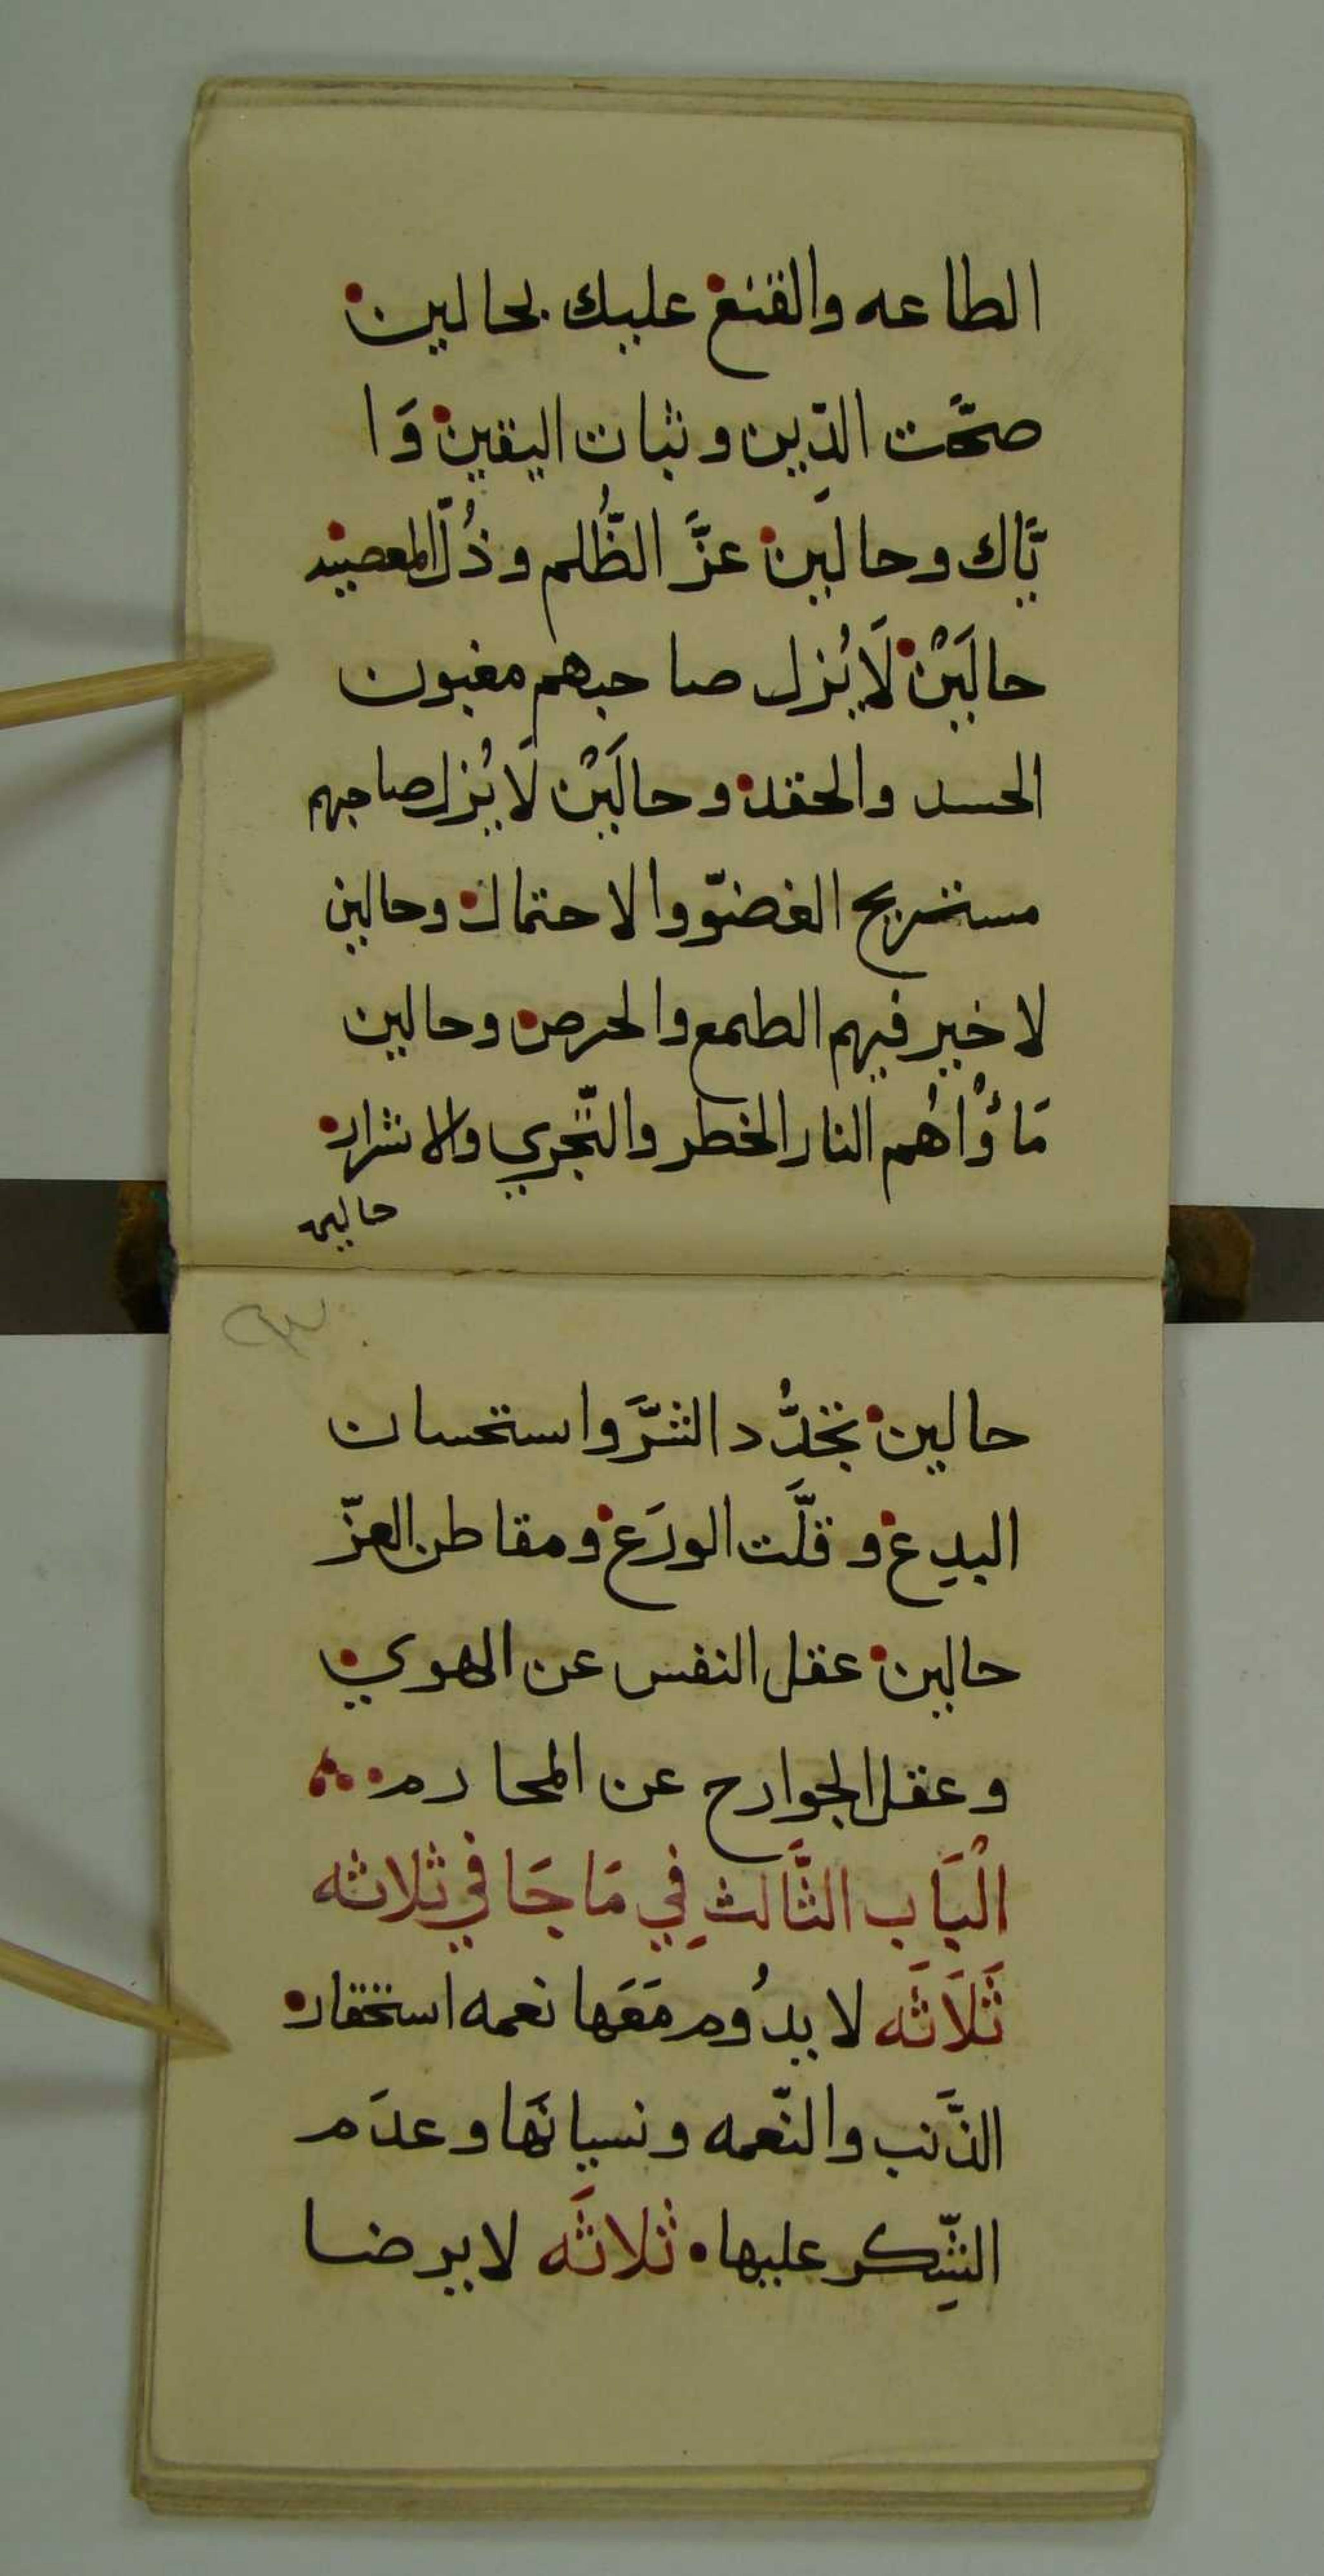 الطاعه والقنع عليك بحالين
صحَّت الدّين وثبات اليقين وَا
يَّاك وحالَين عزَّ الظُّلم وذُلّ المعصيه
حالَيْن لَا يُزل صاحبهم مغبون
الحسد والحقد وحالَيْن لَا يُزل صاحبهم
مستريح الغضوّ والاحتمال وحالين
لا خير فيهم الطمع والحرص وحالين
مَاؤُاهُم النار الخطر والتّجري والاشرار
حالين
حالين تجدُّد الشرَّ واستحسان
البدِع وقلَّت الورَع ومقاطن العزّ
حالين عقل النفس عن الهوي
وعقل الجوارح عن المحارم
الْبَاب الثَّالثِ فِي مَا جَا في ثلاثه
ثَلَاثَه لا يدُوم مَعَها نعمه استحقار
الذَّنب والنّعمه ونسيانَها وعدَم
الشِّكر عليها ثلاثَه لا يرضا